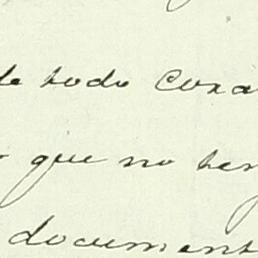 de todo cora
que no ten
document